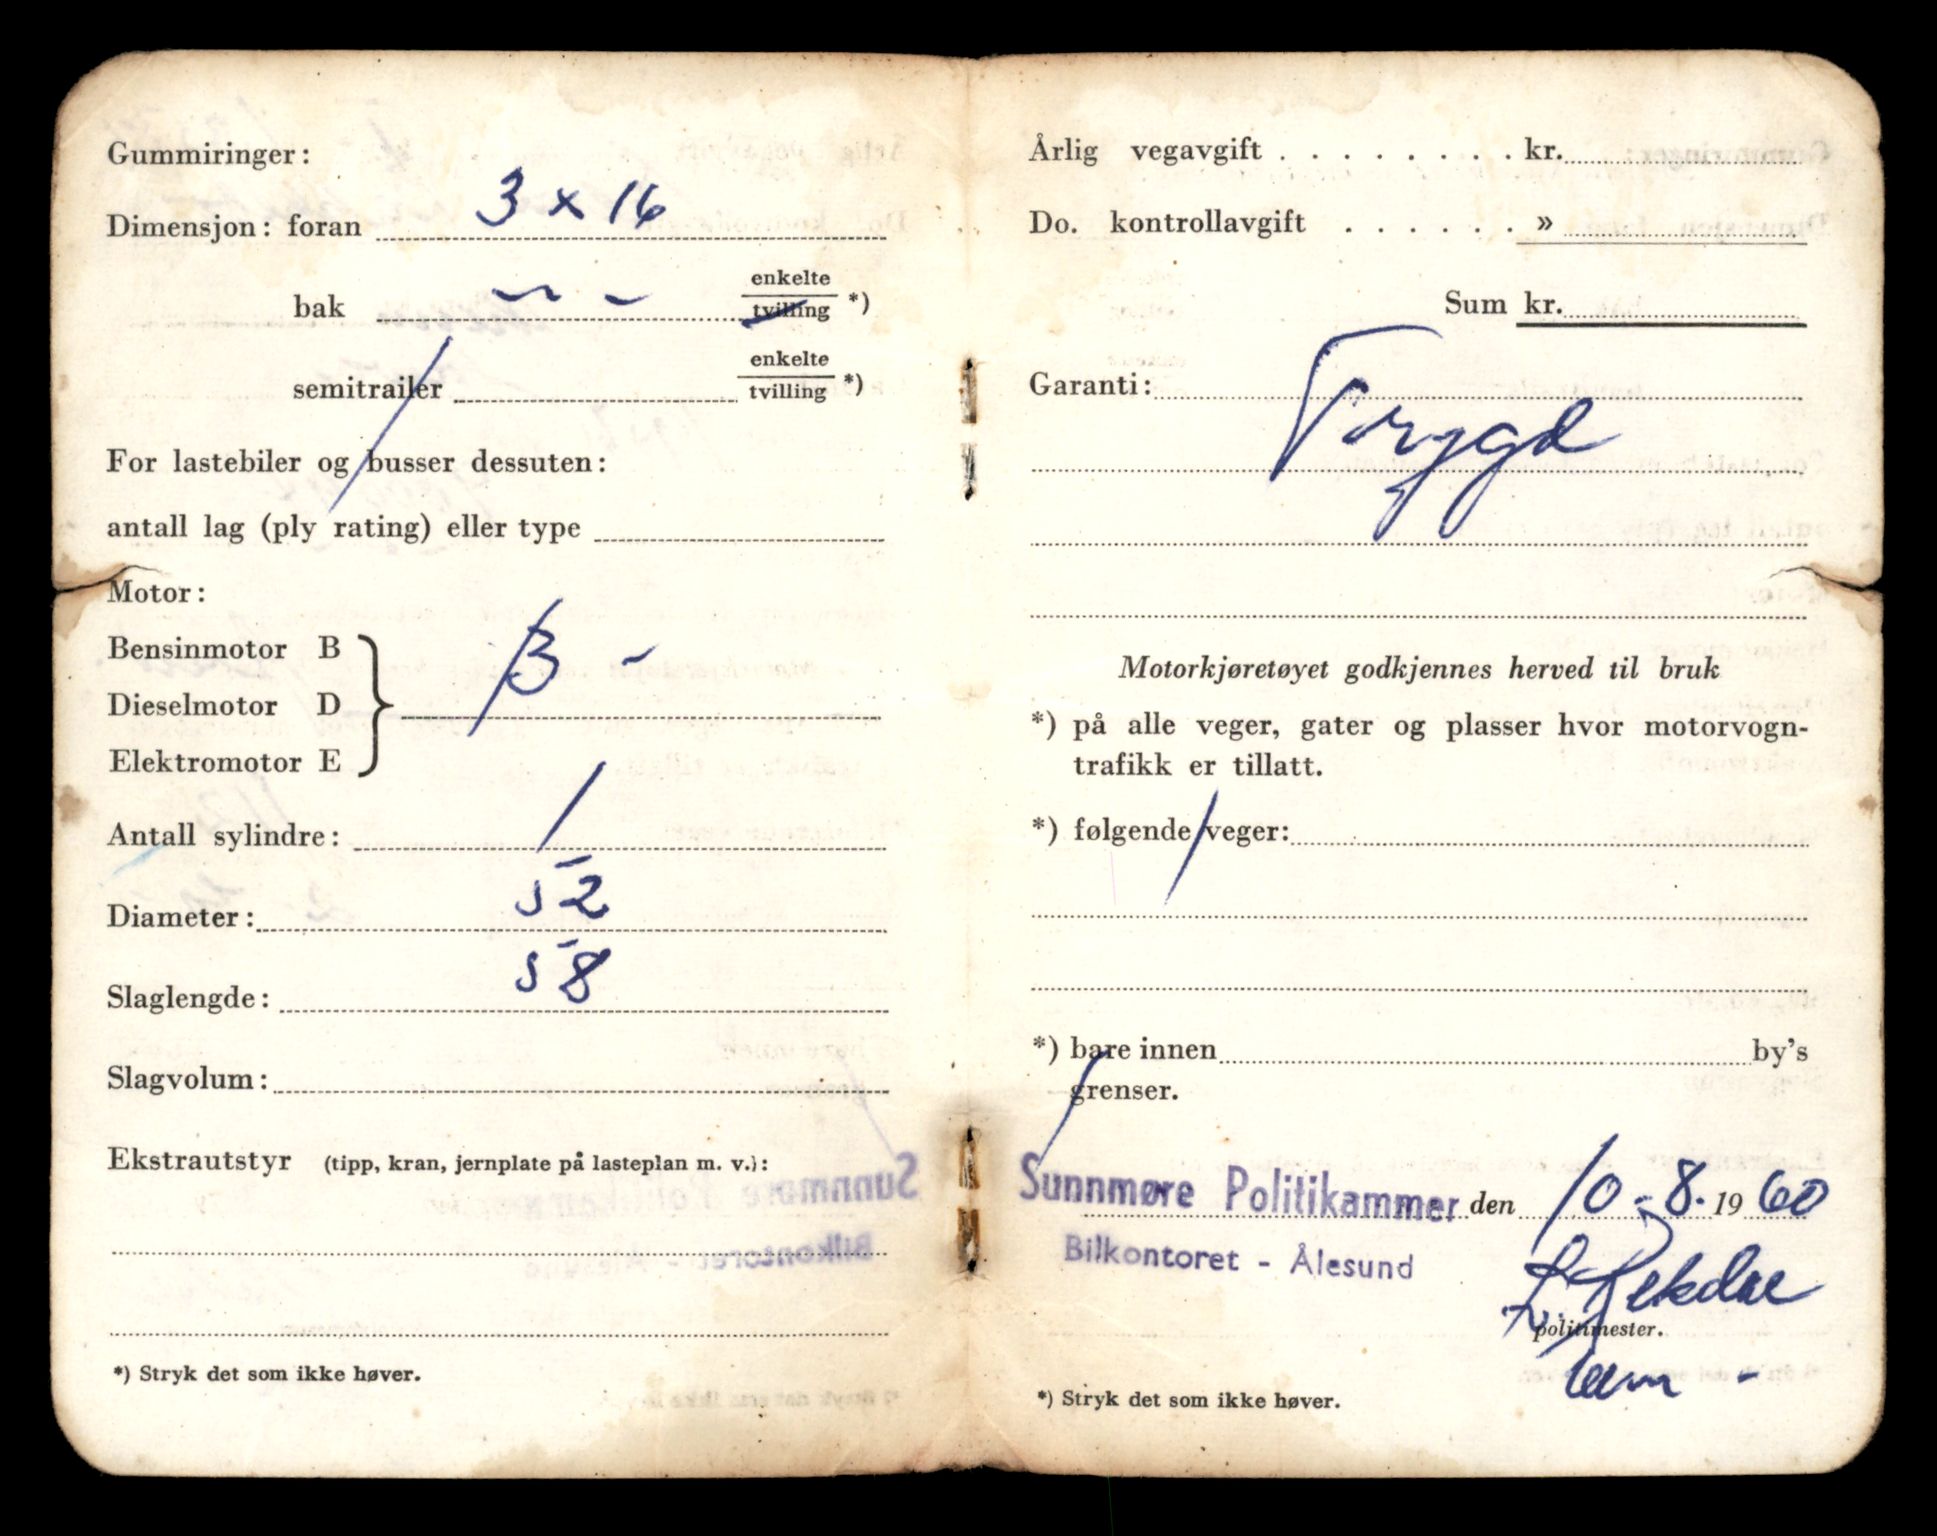 Gummiringer:
Dimensjon: foran 3 x 16
bak — — enkelte tvilling *)
semitrailer enkelte tvilling *)
For lastebiler og busser dessuten:
antall lag (ply rating) eller type
Motor:
Bensinmotor B
Dieselmotor D
Elektromotor E
B -
Antall sylindre: 1
Diameter: 52
Slaglengde: 58
Slagvolum:
Ekstrautstyr (tipp, kran, jernplate på lasteplan m. v.):
*) Stryk det som ikke høver.
Årlig vegavgift . . . . . . . . kr.
Do. kontrollavgift . . . . . . »
Sum kr.
Garanti:
Trygd
Motorkjøretøyet godkjennes herved til bruk
*) på alle veger, gater og plasser hvor motorvogn-
trafikk er tillatt.
*) følgende veger:
*) bare innen by's
grenser.
Sunnmøre Politikammer den 10-8. 1960
Bilkontoret - Ålesund
politimester.
*) Stryk det som ikke høver.